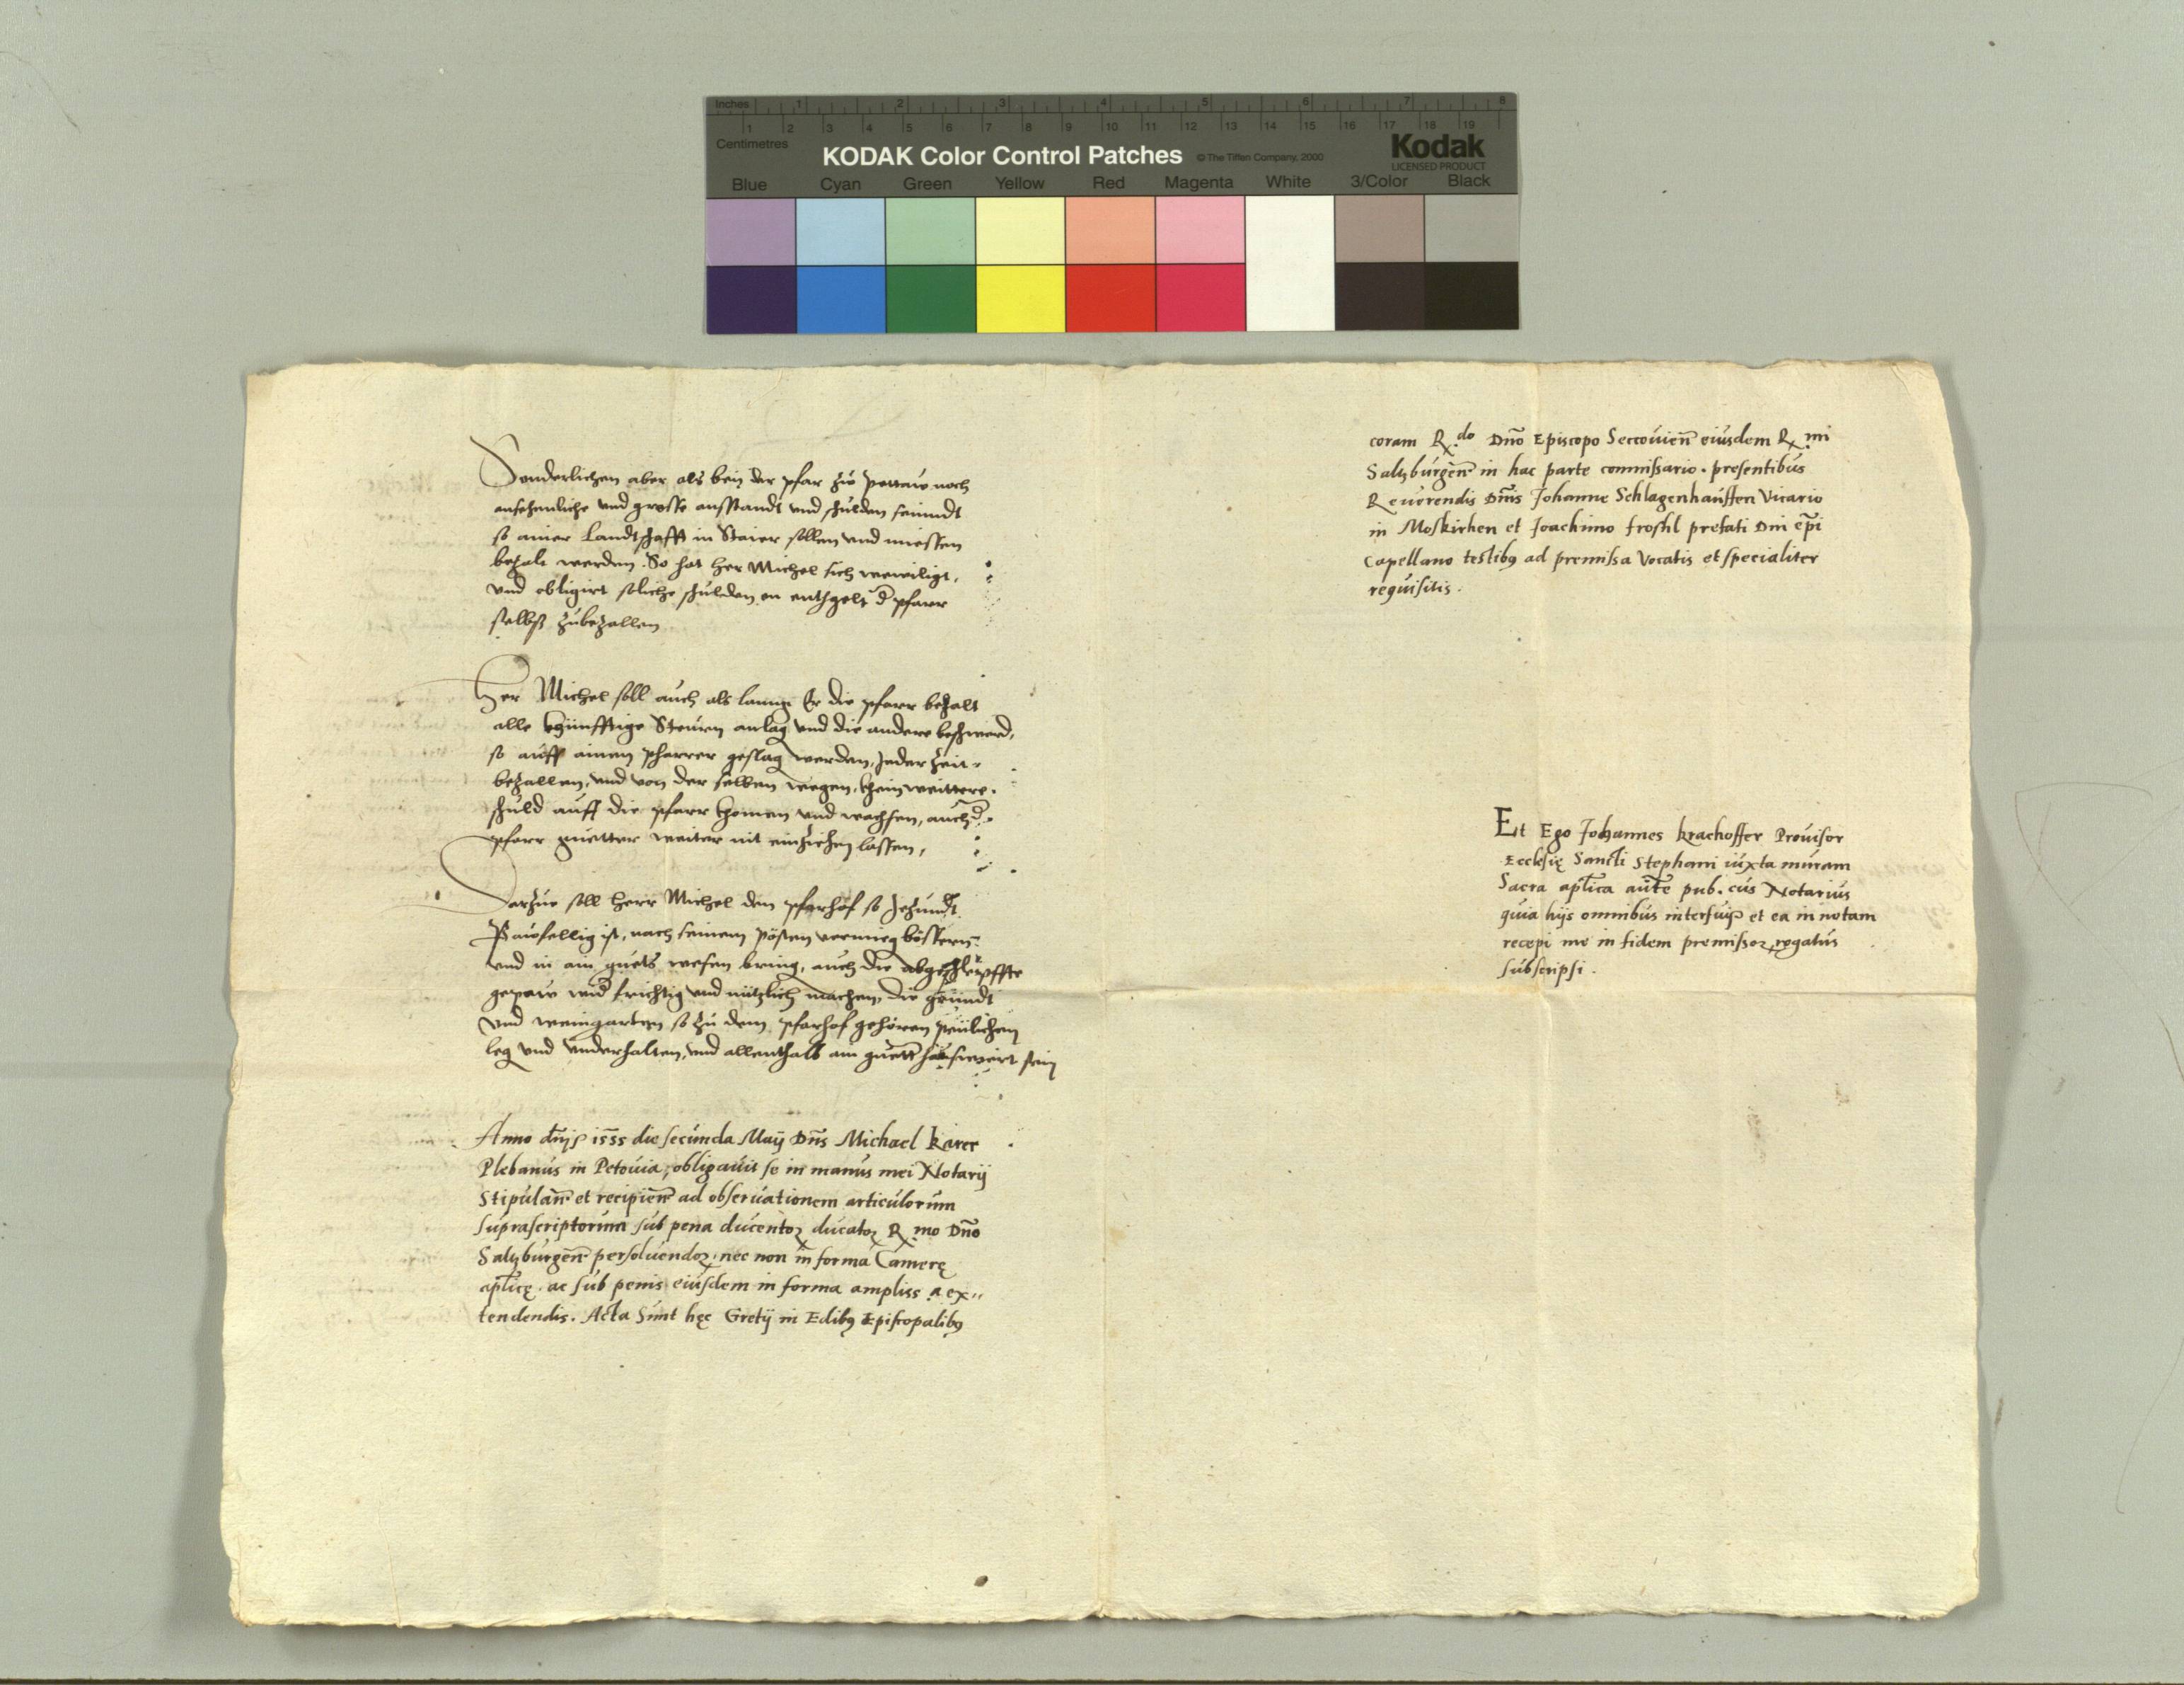 Inches 1 2 3 4 5 6 7 8
1 2 3 4 5 6 7 8 9 10 11 12 13 14 15 16 17 18 19
Centimetres
KODAK Color Control Patches © The Tiffen Company, 2000 Kodak
LICENSED PRODUCT
Blue Cyan Green Yellow Red Magenta White 3/Color Black
Sonderlichen aber als bein der pfar zů Pettaw noch
ansehenliche vnd grosse ausstandt vnd schulden seindt
so ainer Landtschafft in Steier sollen vnd miessen
bezalt werden. So hat her Michel sich verwiligt,
vnd obligirt soliche schulden on enthgelt d pfarr
selbst zůbezallen
Her Michel soll auch als lanng Er die pfarr behalt
alle khünfftige Steurn anlag vnd die andere beschwerd,
so auff ainen pharrer geslag werden, Jeder Zeit
bezallen, vnd von der selben wegen, khein weittere
schuld auff die pfarr khomen vnd wachsen, auch d
pfarr guetter weiter nit einziehen lassen,
Darzue soll herr Michel den pfarhof so Jezundt
Pawfellig ist, nach seinem pösten vermig bössern
vnd in ain guets wesen bring, auch die
gepaw wid frichtig vnd nützlich machen, die gründt
vnd weingarten so zu dem pfarhof gehören peülichen
leg vnd vnderhalten, vnd allenthalb ain guett hauswirt sein
Anno dnj 1555 die secunda Maij Dns Michael karer
Plebanus in Petouia, obligauit se in manus mei Notarij
Stipulan et recipien ad obseruationem articulorum
suprascriptorum sub pena ducentoꝝ ducatoꝝ R.mo Dno
Saltzburgen persoluendoꝝ, nec non in forma Camerę
aplicę. ac sub penis eiusdem in forma ampliss.a ex„
tendendis. Acta Sunt hęc Gretij in Edibꝯ Episcopalibꝯ
coram R.do Dno Episcopo Seccouien eiusdem R.mi
Saltzburgen in hac parte commissario. presentibus
Reuerendis Dnis Johanne Schlagenhauffen Vicario
in Moskirhen et Joachimo froshl prefati Dni epi
Capellano testibꝯ ad premissa Vocatis et specialiter
requisitis.
Et Ego Johannes krachoffer Prouisor
Ecclesię Sancti Stephani iuxta muram
Sacra aplica aute pub.cus Notarius
quia hijs omnibus interfui et ea in notam
recepi me in fidem premissoꝝ rogatus
subscripsi.